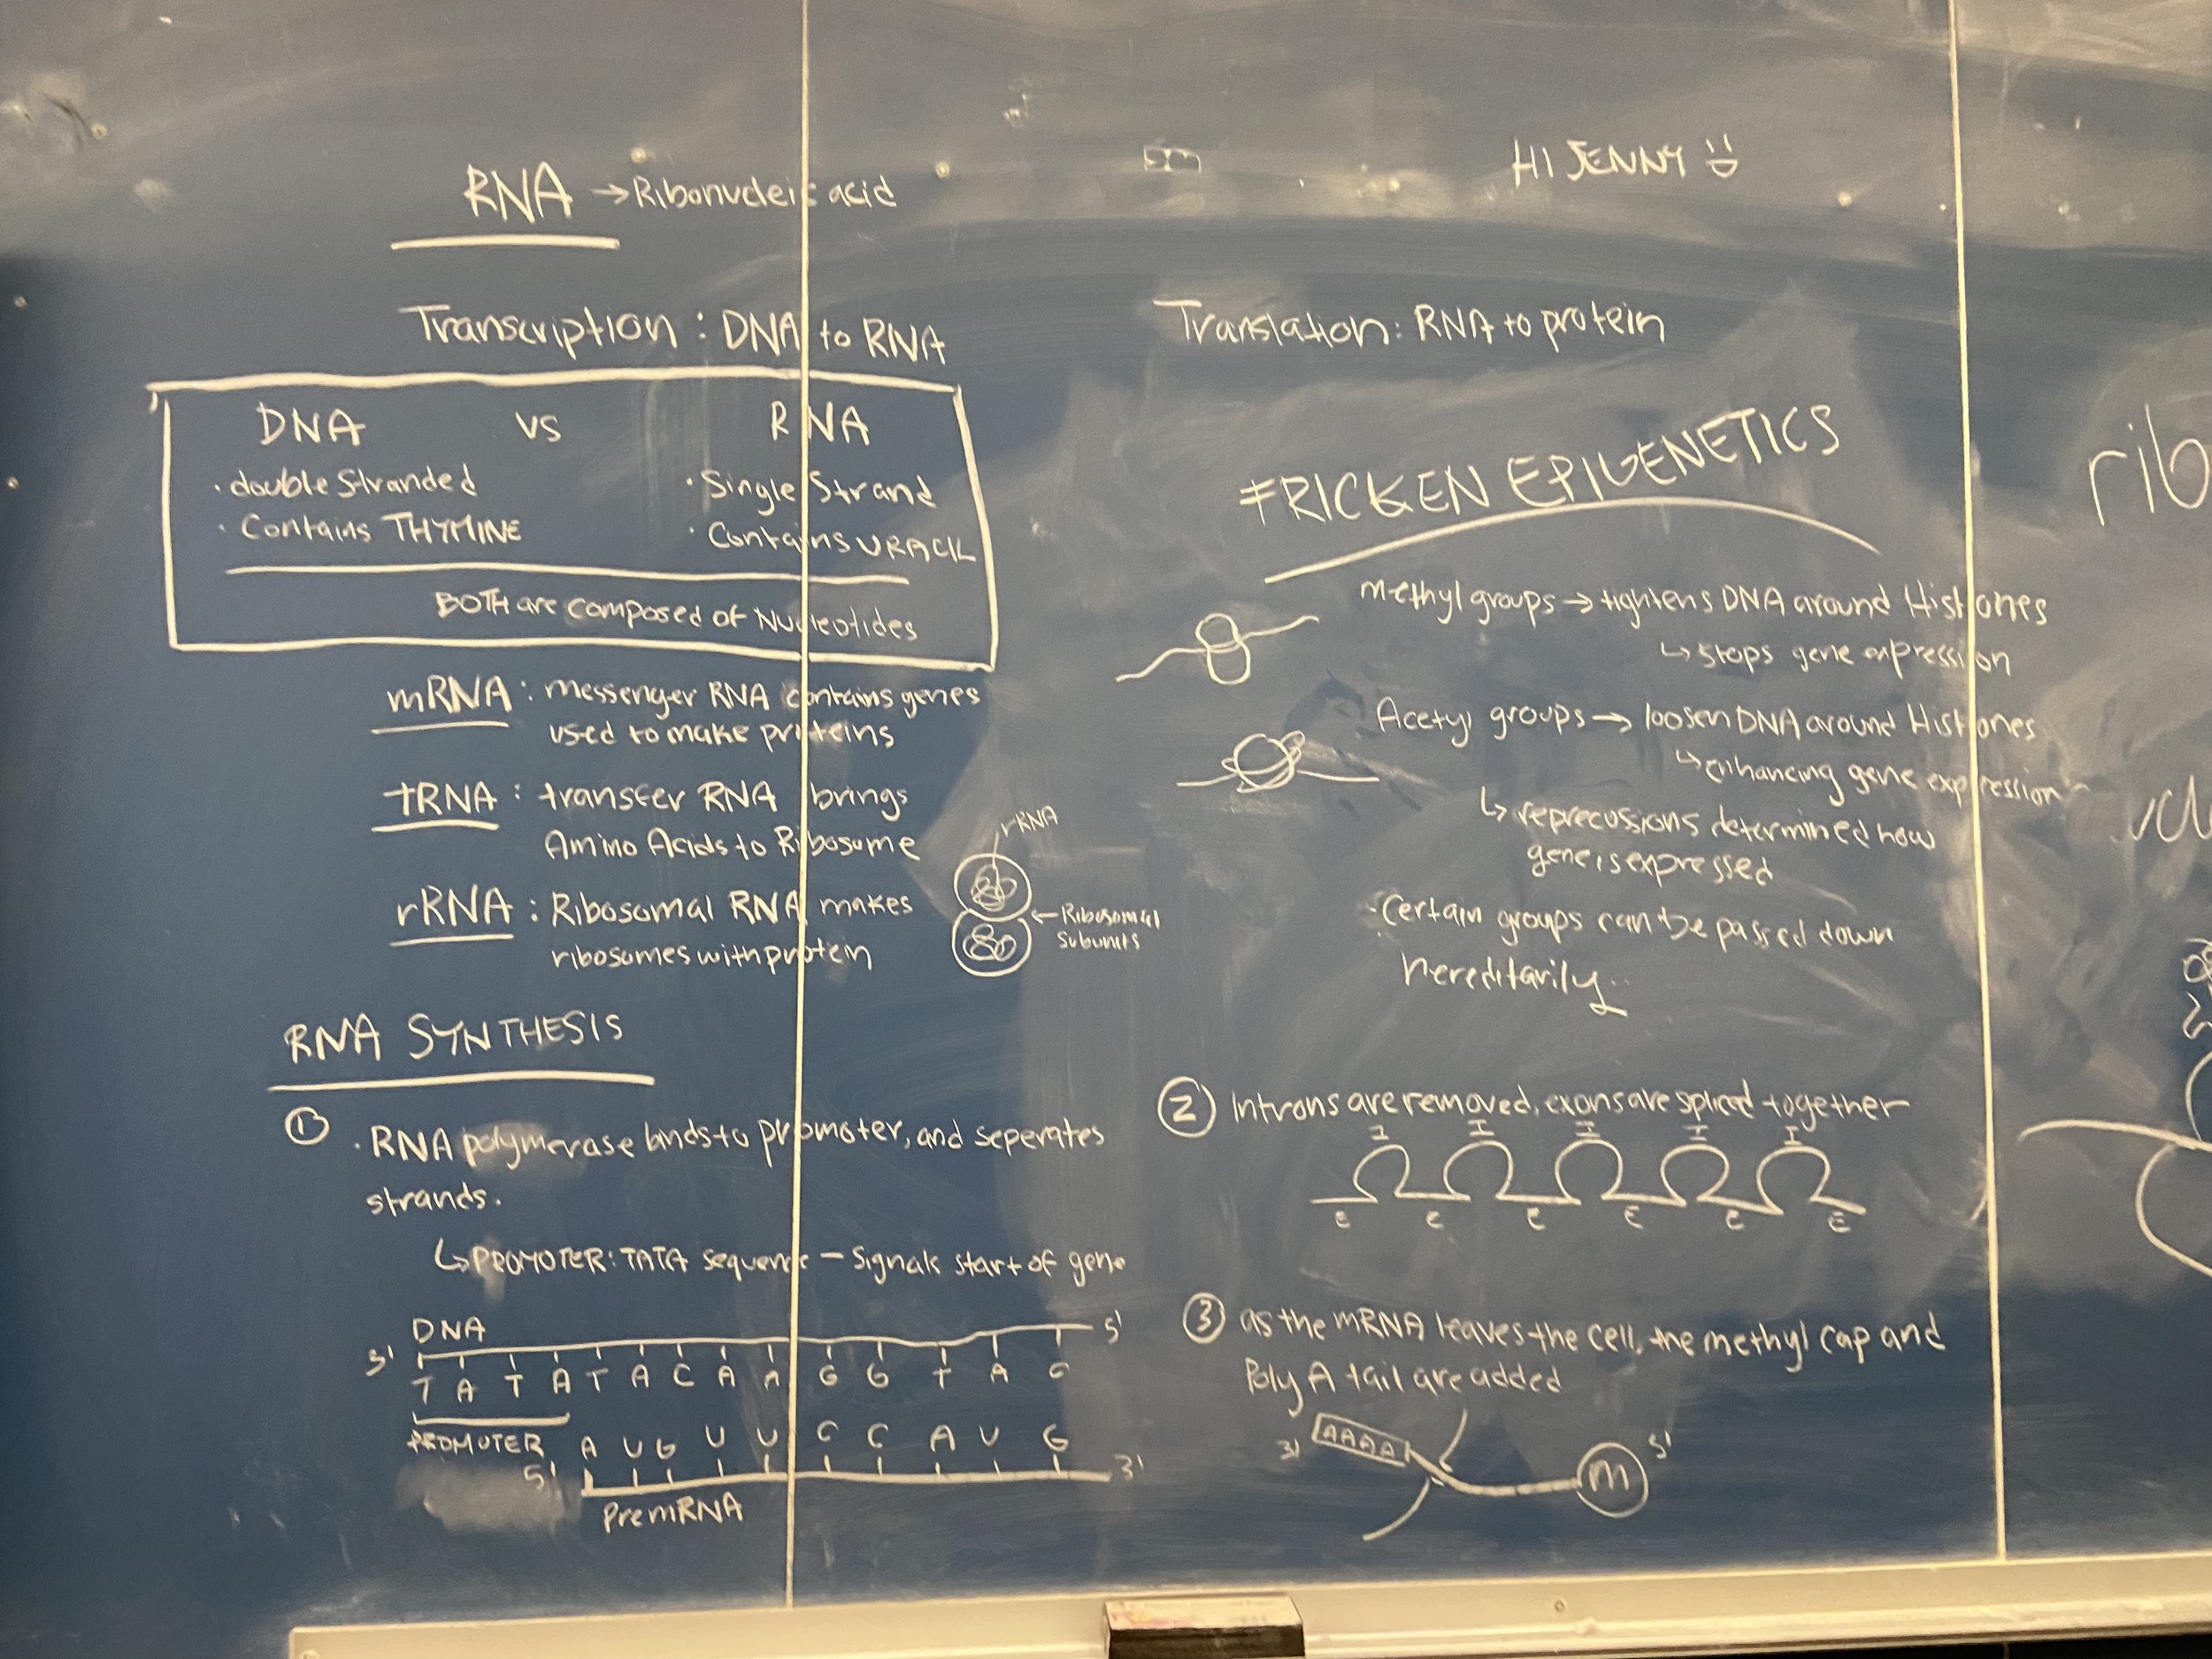 RNA → Ribonucleic acid
HI JENNY
Transcription : DNA to RNA
DNA vs RNA
· double stranded
· Contains THYMINE
· Single Strand
· Contains URACIL
BOTH are composed of Nucleotides
mRNA : messenger RNA contains genes
used to make proteins
tRNA : transfer RNA brings
Amino Acids to Ribosome
rRNA : Ribosomal RNA makes
ribosomes with protein
rRNA
← Ribosomal
Subunits
RNA SYNTHESIS
① · RNA polymerase binds to promoter, and seperates
strands.
↳ PROMOTER: TATA sequence – Signals start of gene
DNA
3' 5'
T A T A T A C A A G G T A C
PROMOTER
A U G U U C C A U G
5' 3'
PremRNA
Translation: RNA to protein
FRICKEN EPIGENETICS
Methyl groups → tightens DNA around Histones
↳ Stops gene expression
Acetyl groups → loosen DNA around Histones
↳ enhancing gene expression
↳ reprecussions determined how
gene is expressed
· Certain groups can be passed down
hereditarily..
② Introns are removed, exons are spliced together
I I I I I
E E E E E E
③ as the mRNA leaves the cell, the methyl cap and
Poly A tail are added
3' AAAA M 5'
rib